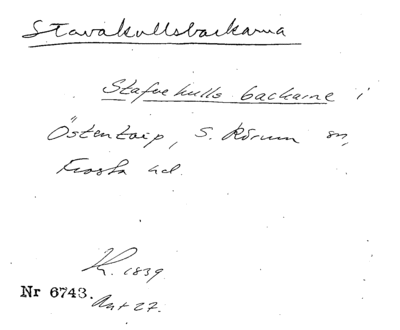 Stavakullsbackarna
Stafvekulls backarne i
Östentorp, S. Rörum sn,
Frosta hd.
K. 1839
Nr 6743. Ant 27.